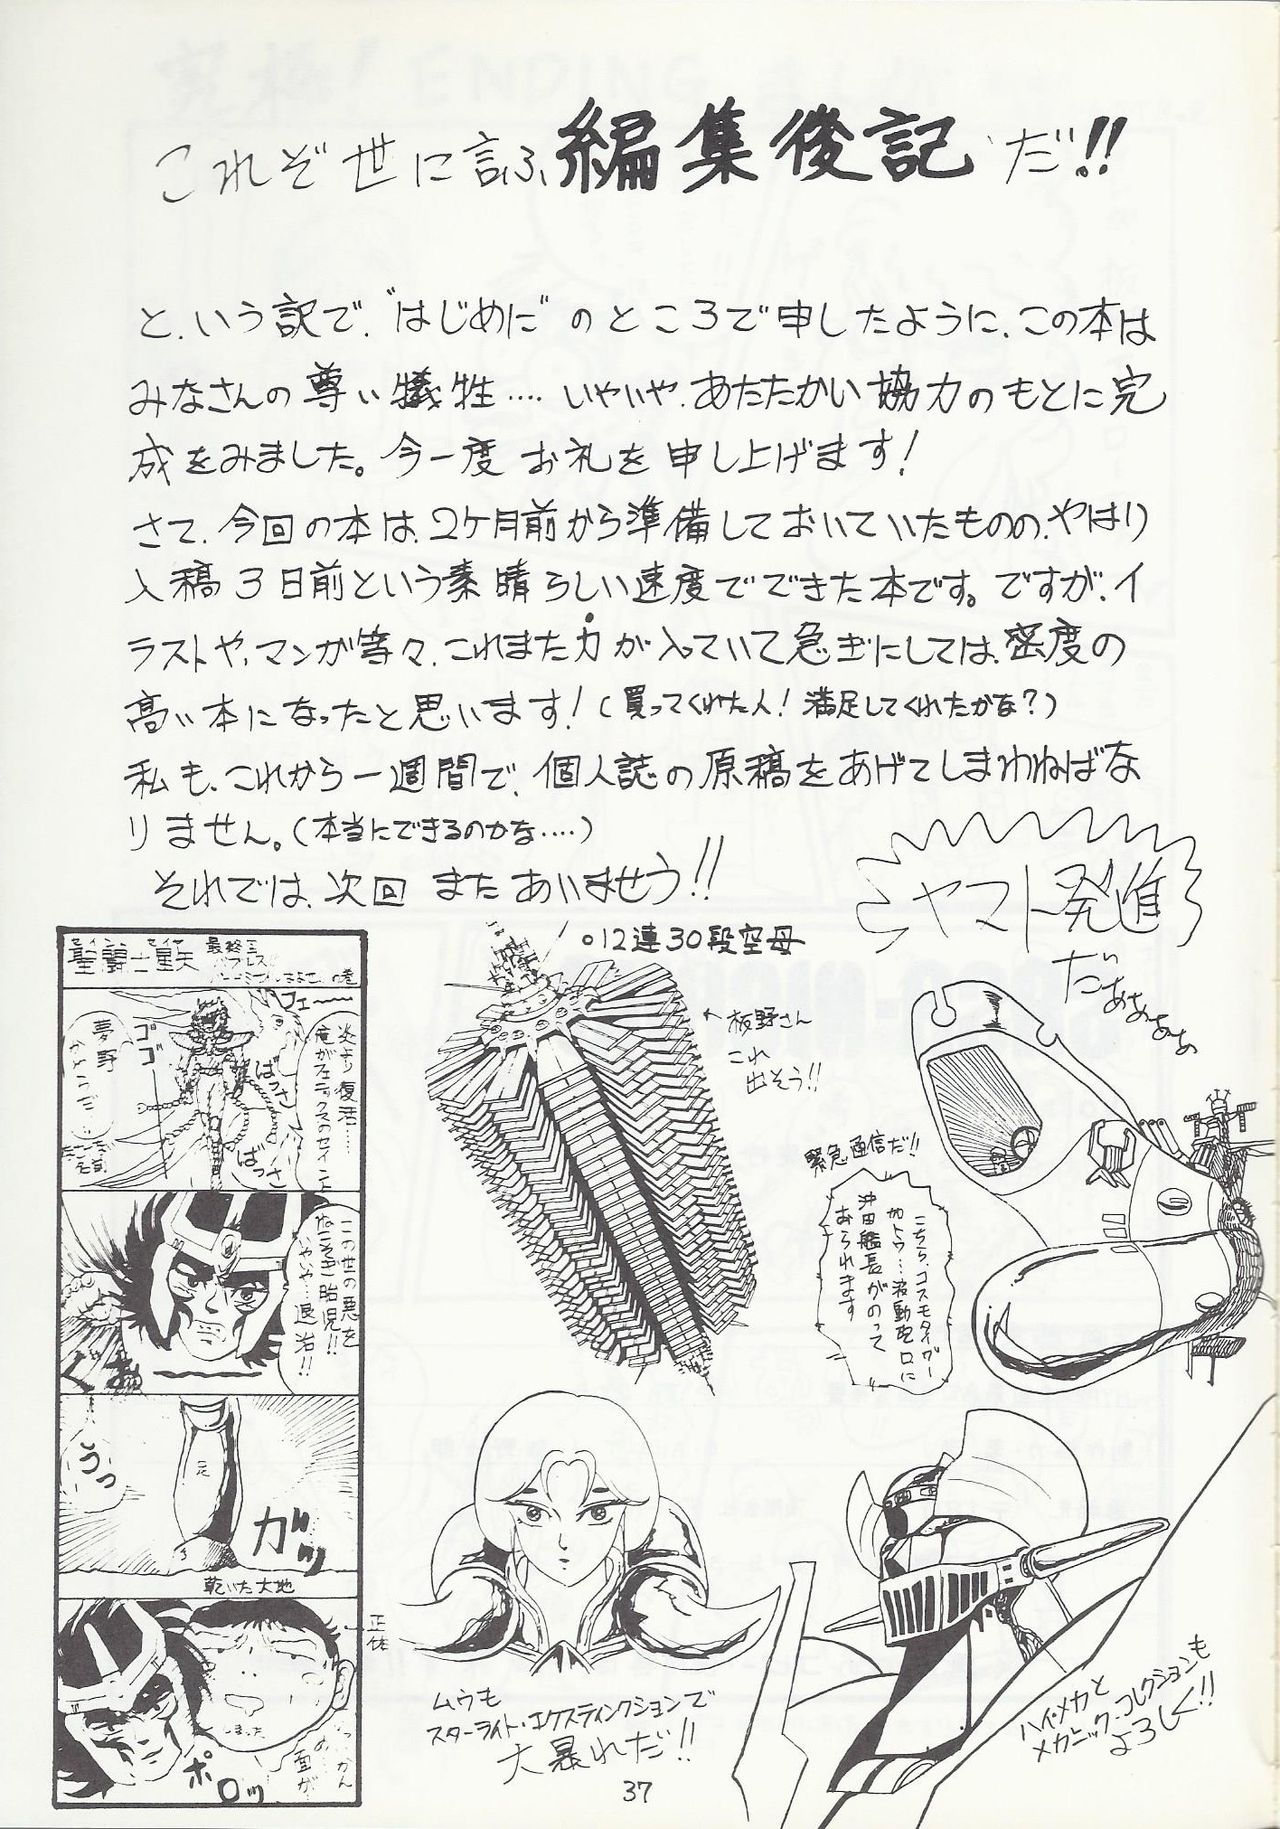 これぞ世に言ふ編集後記だ!!
と、いう訳で、"はじめに"のところで申したように、この本は
みなさんの尊い犠牲‥‥いやいや、あたたかい協力のもとに完
成をみました。今一度お礼を申し上げます!
さて、今回の本は、2ケ月前から準備しておいていたものの、やはり
入稿3日前という素晴らしい速度でできた本です。ですが、イ
ラストや、マンガ等々、これまた力が入っていて急ぎにしては、密度の
高い本になったと思います!(買ってくれた人!満足してくれたかな?)
私も、これから一週間で、個人誌の原稿をあげてしまわねばな
りません。(本当にできるのかな‥‥)
それでは、次回またあいませう!!
ヤマト発進
だぁぁぁぁぁ
○12連30段空母
←板野さん
これ
出そう!!
緊急通信だ!!
こちら、コスモタイガー
加トウ…波動砲口に
沖田艦長がのって
おられます
聖闘士星矢
最終
の巻
炎より復活……
俺がフェニックスのセイントだ
フェ〜〜
ゴゴ
ばっさ
ばっさ
夢野
この世の悪を
なにそぎ胎児!!
いやいや…退治!!
ぐおぉ
うっ
ガッ
乾いた大地
正体
しまった
面が
ポロッ
ムウも
スターライト・エクスティンクションで
大暴れだ!!
ハイ・メカと
メカニック・コレクションも
よろしく!!
37